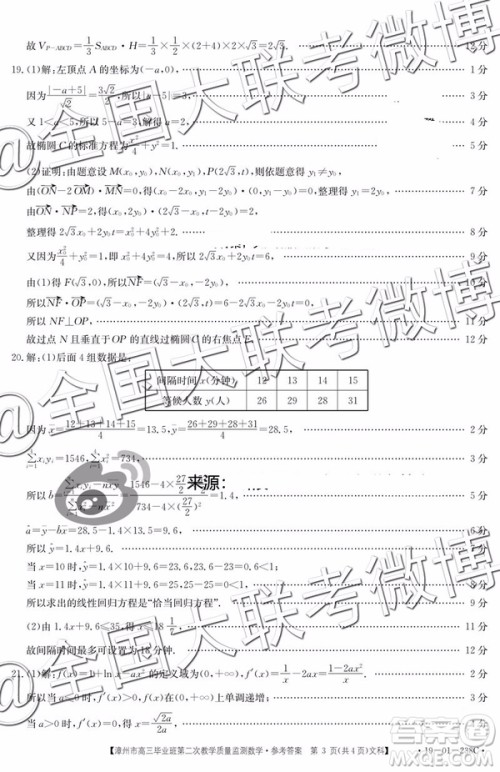 故 V_{P-ABCD}=1/3 S_{ABCD}·H=1/3×1/2×(2+4)×2×√3=2√3. 12分
19.(1)解:左顶点 A 的坐标为(-a,0), 1分
因为 |-a+5|/√2=3√2/2,所以|a-5|=3, 3分
又 1<a<5,所以 5-a=3,解得 a=2, 4分
故椭圆 C 的标准方程为 x²/4+y²=1. 5分
(2)证明:由题意设 M(x₀,y₀),N(x₀,y₁),P(2√3,t),则依题意得 y₁≠y₀,
由(ON-2OM)·MN=0,得(x₀-2x₀,y₁-2y₀)·(0,y₁-y₀)=0, 7分
由 ON·NP=2,得(x₀,2y₀)·(2√3-x₀,t-2y₀)=2,
整理得 2√3x₀+2y₀t=x₀²+4y₀²+2. 8分
又因为 x₀²/4+y₀²=1,即 x₀²+4y₀²=4,所以 2√3x₀+2y₀t=6, 9分
由(1)得 F(√3,0),所以 NF=(√3-x₀,-2y₀), 10分
所以 NF·OP=(√3-x₀,-2y₀)·(2√3,t)=6-2√3x₀-2y₀t=0,
所以 NF⊥OP, 11分
故过点 N 且垂直于 OP 的直线过椭圆 C 的右焦点 F. 12分
20.解:(1)后面 4 组数据是:
间隔时间 x(分钟) 12 13 14 15
等候人数 y(人) 26 29 28 31
因为 x̄=(12+13+14+15)/4=13.5,ȳ=(26+29+28+31)/4=28.5,
x_iy_i=1546, x_i²=734,
来源:
所以 1546-4×27/2 734-4×(27/2)² =1.4,
â=ȳ-b̂x̄=28.5-1.4×13.5=9.6,
所以 ŷ=1.4x+9.6.
当 x=10 时,ŷ=1.4×10+9.6=23.6,23.6-23=0.6<1;
当 x=11 时,ŷ=1.4×11+9.6=25,25-25=0<1,
所以求出的线性回归方程是“恰当回归方程”.
(2)由 1.4x+9.6≤35,得 x≤18
故间隔时间最多可设置为 18 分钟.
21.(1)解:f(x)=1+ln x-ax² 的定义域为(0,+∞),f′(x)=1/x-2ax=(1-2ax²)/x 2分
所以当 a≤0 时,f′(x)>0,所以 f(x)在(0,+∞)上单调递增; 3分
当 a>0 时,f′(x)=0,得 x=√(2a)/2a
【漳州市高三毕业班第二次教学质量监测数学·参考答案 第 3 页(共 4 页)文科】
·19-01-235C·
@全国大联考微博
@全国大联考微博
@全国大联考微博